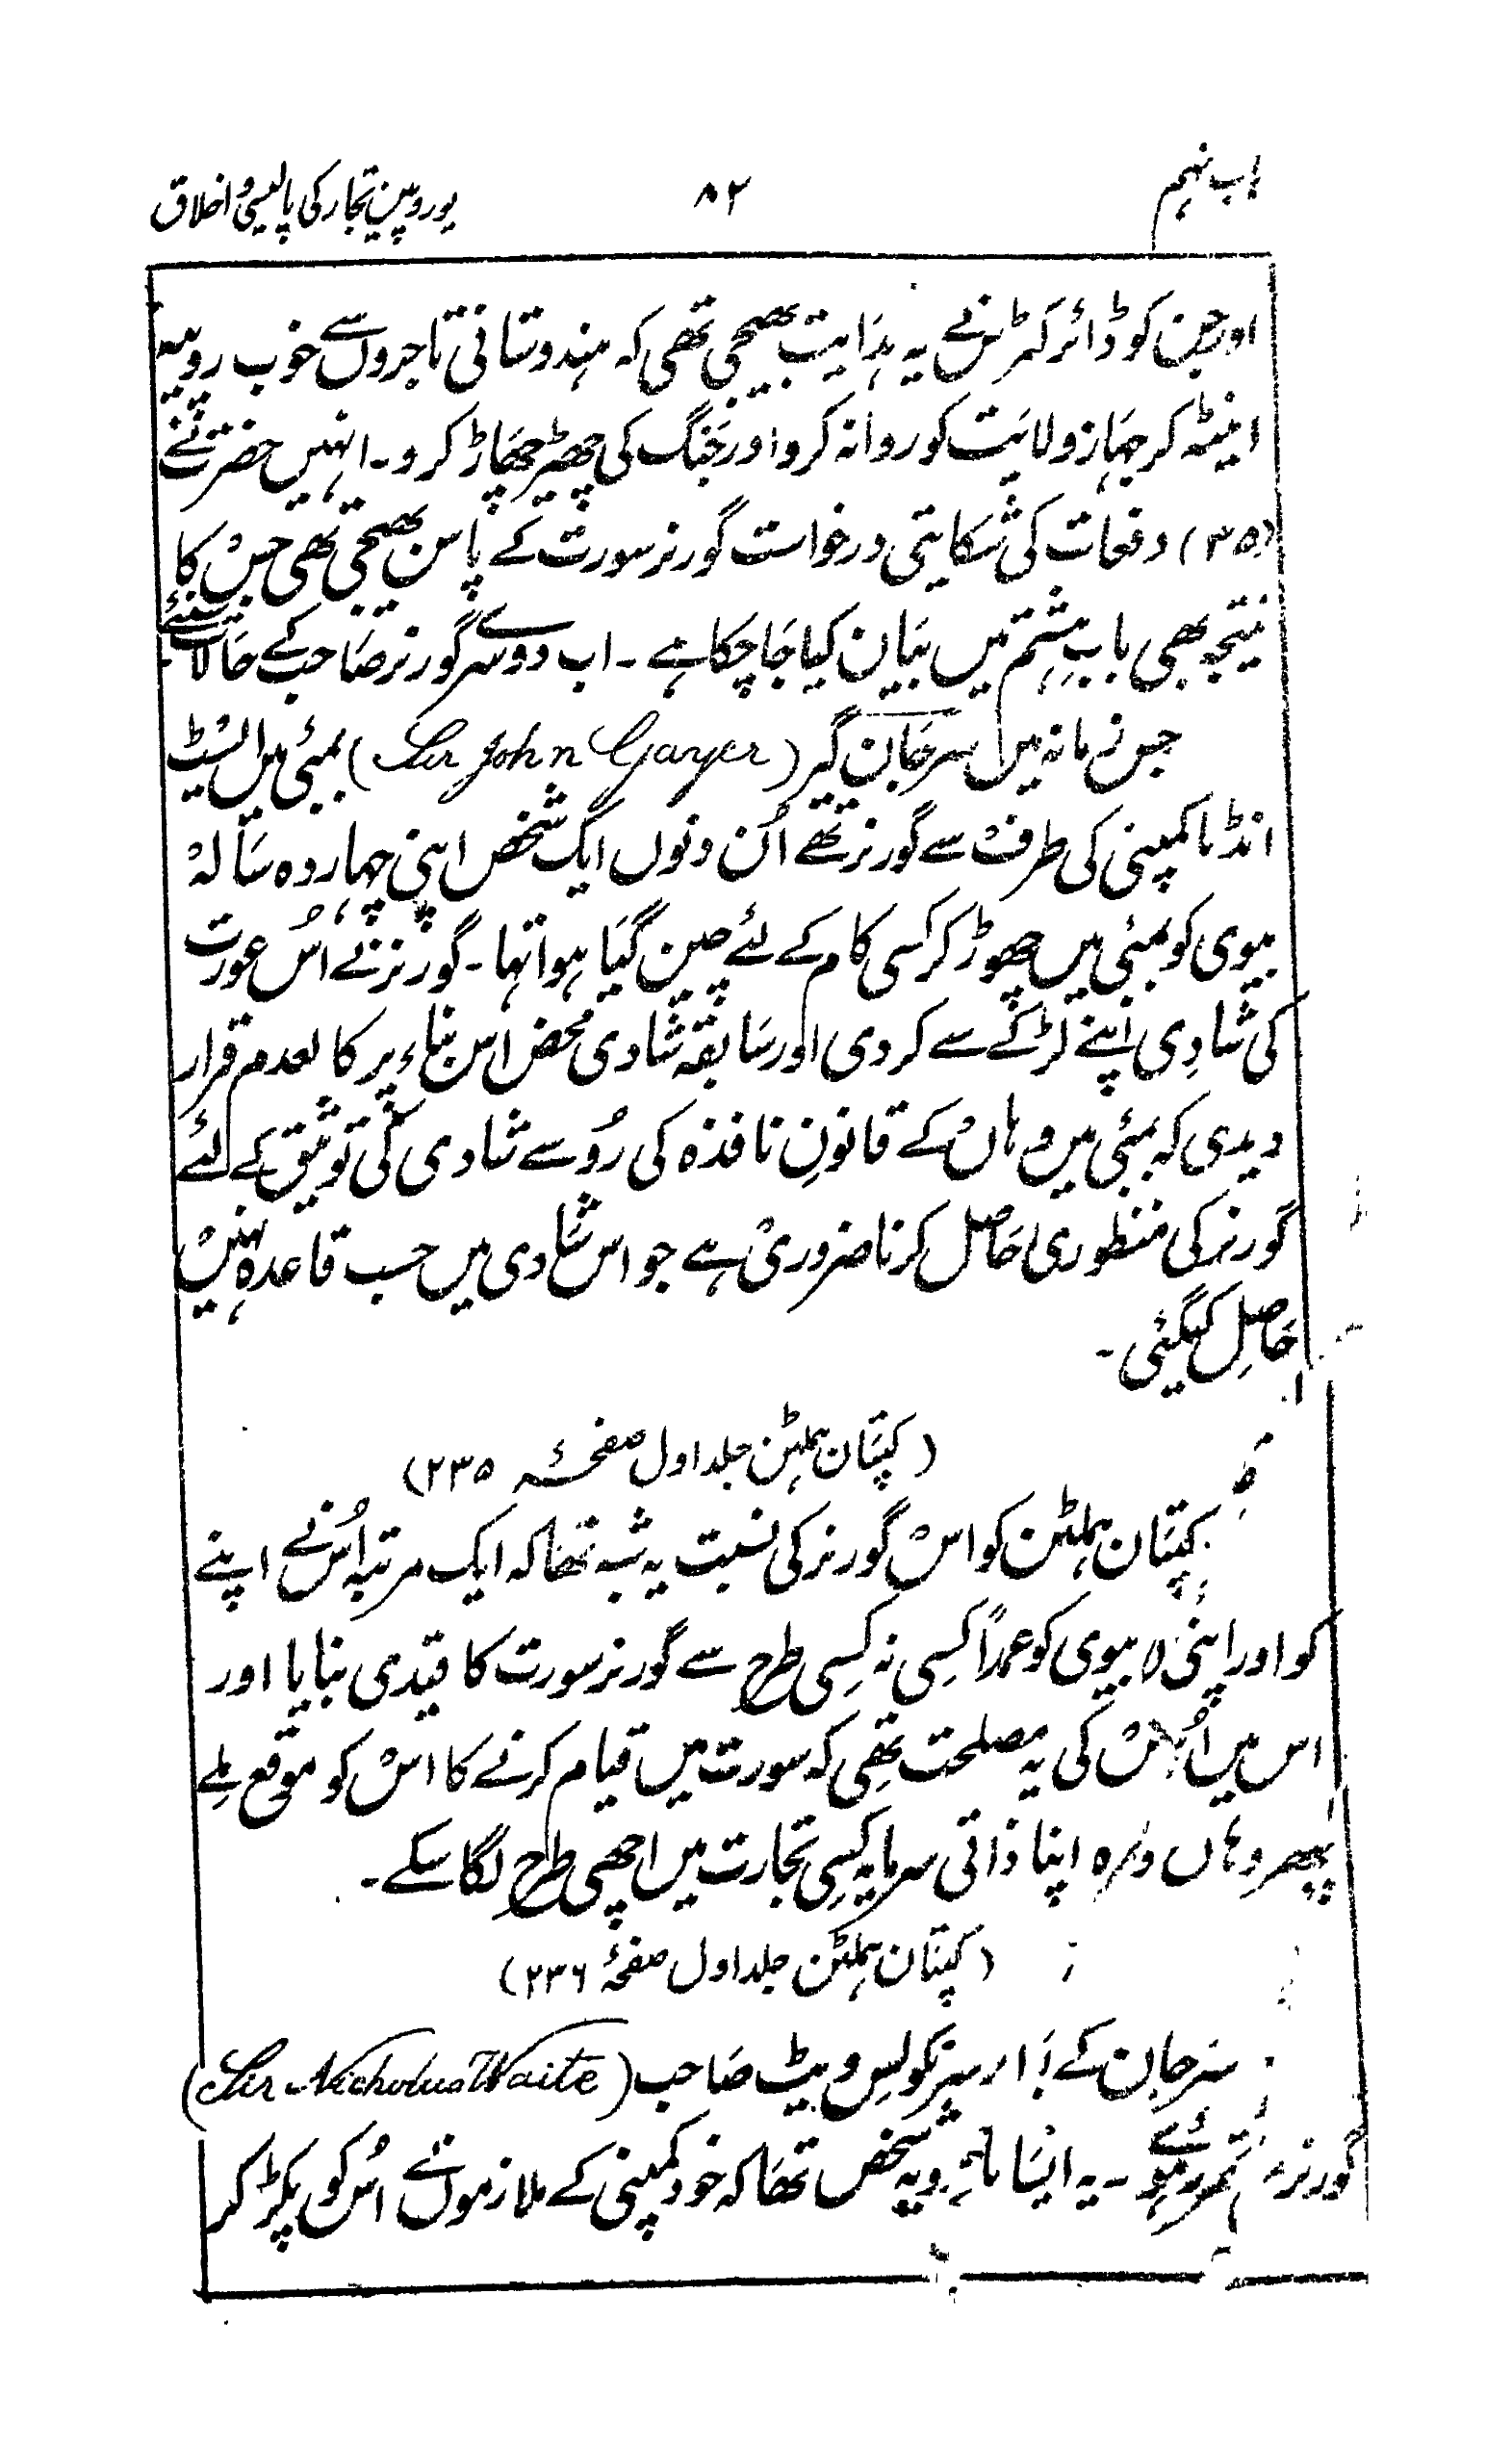 باب نہم
۸۲
یوروپین تجار کی پالیسی و اخلاق
اور جن کو ڈائرکٹرس نے یہ ہدایت بھیجی تھی کہ ہندوستانی تاجروں سے خوب روپیہ
اینٹھ کر جہاز ولایت کو روانہ کرو اور جنگ کی چھیڑ چھاڑ کرو۔ انہیں حضرت نے
(۳۵) دفعات کی شکایتی درخواست گورنر سورت کے پاس بھیجی تھی جس کا
نتیجہ بھی باب ہشتم میں بیان کیا جا چکا ہے۔ اب دوسرے گورنر صاحب کے حالات سنئے
جس زمانہ میں سر جان گیر (Sir John Gayer) بمبئی میں ایسٹ
انڈیا کمپنی کی طرف سے گورنر تھے اُن دنوں ایک شخص اپنی چہاردہ سالہ
بیوی کو بمبئی میں چھوڑ کر کسی کام کے لئے چین گیا ہوا تہا۔ گورنر نے اُس عورت
کی شادِی اپنے لڑکے سے کر دی اور سابقہ شادی محض اس بناء پر کالعدم قرار
دیدی کہ بمبئی میں وہاں کے قانونِ نافذہ کی رُو سے شادی کی توثیق کے لئے
گورنر کی منظوری حاصل کرنا ضروری ہے جو اس شادی میں حسب قاعدہ نہیں
حاصِل کیگئی۔
(کپتان ہملٹن جلد اول صفحۂ ۲۳۵)
کپتان ہملٹن کو اس گورنر کی نسبت یہ شبہ تھا کہ ایک مرتبہ اُس نے اپنے
کو اور اپنی بیوی کو عمداً کسِی نہ کسِی طرح سے گورنر سورت کا قیدی بنایا اور
اس میں اُس کی یہ مصلحت تھی کہ سورت میں قیام کرنے کا اس کو موقع ملے
پھر وہاں وہ اپنا ذاتی سرمایہ کسِی تجارت میں اچھی طرح لگا سکے۔
(کپتان ہملٹن جلد اول صفحۂ ۲۳۶)
سر جان کے سر نکولس ویٹ صاحب (Sir Nicholus Waite)
گورنر مقرر ہوئے۔ یہ ایسا شخص تھا کہ خود کمپنی کے ملازموں نے اُس کو پکڑ کر